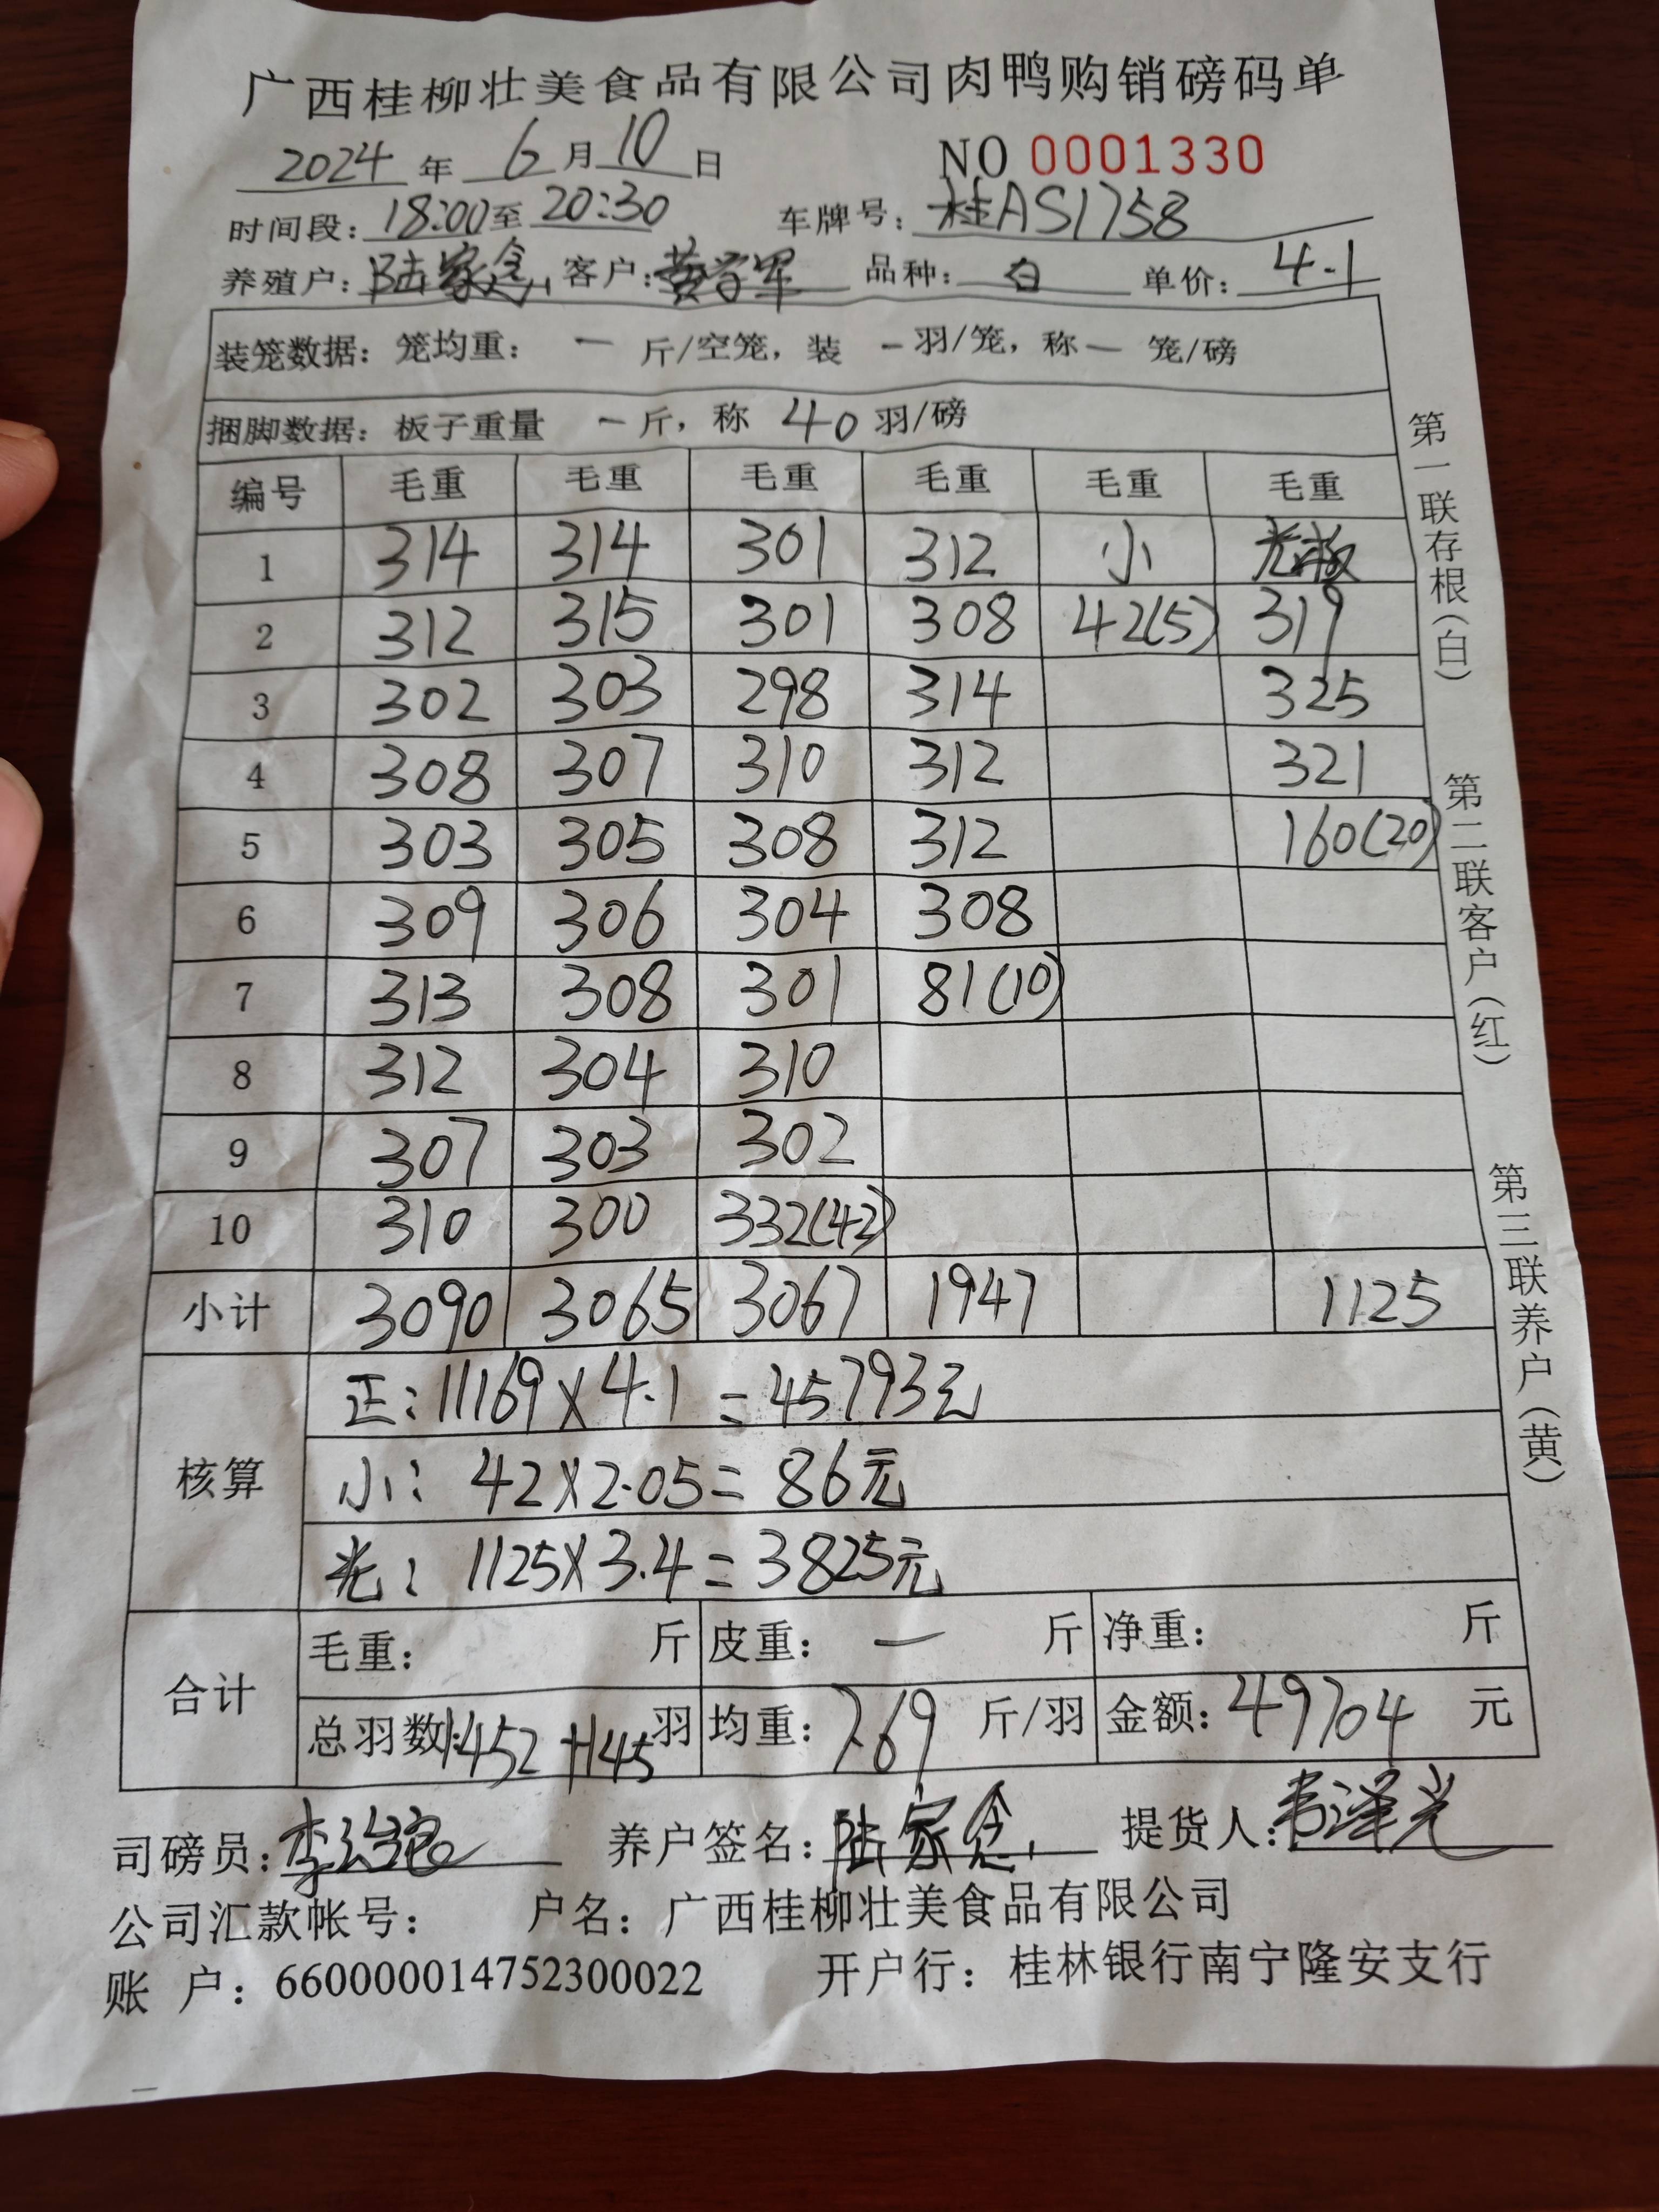 广西桂柳壮美食品有限公司肉鸭购销磅码单
2024 年 6 月 10 日 NO 0001330
时间段: 18:00至 20:30 车牌号: 桂AS1758
养殖户: 陆家念 客户: 黄学军 品种: 白 单价: 4.1
装笼数据: 笼均重: — 斤/空笼, 装 — 羽/笼, 称 — 笼/磅
捆脚数据: 板子重量 — 斤, 称 40 羽/磅
编号 毛重 毛重 毛重 毛重 毛重 毛重
1 314 314 301 312 小
2 312 315 301 308 42(5) 319
3 302 303 298 314 325
4 308 307 310 312 321
5 303 305 308 312 160(20)
6 309 306 304 308
7 313 308 301 81(10)
8 312 304 310
9 307 303 302
10 310 300 332(42)
小计 3090 3065 3067 1947 1125
核算 正: 11169×4.1=45793元
小: 42×2.05=86元
光: 1125×3.4=3825元
合计 毛重: 斤 皮重: — 斤 净重: 斤
总羽数: 1452+145 羽 均重: 7.69 斤/羽 金额: 49704 元
司磅员: 养户签名: 陆家念 提货人: 韦泽光
公司汇款帐号: 户名: 广西桂柳壮美食品有限公司
账 户: 660000014752300022 开户行: 桂林银行南宁隆安支行
第一联存根(白)
第二联客户(红)
第三联养户(黄)